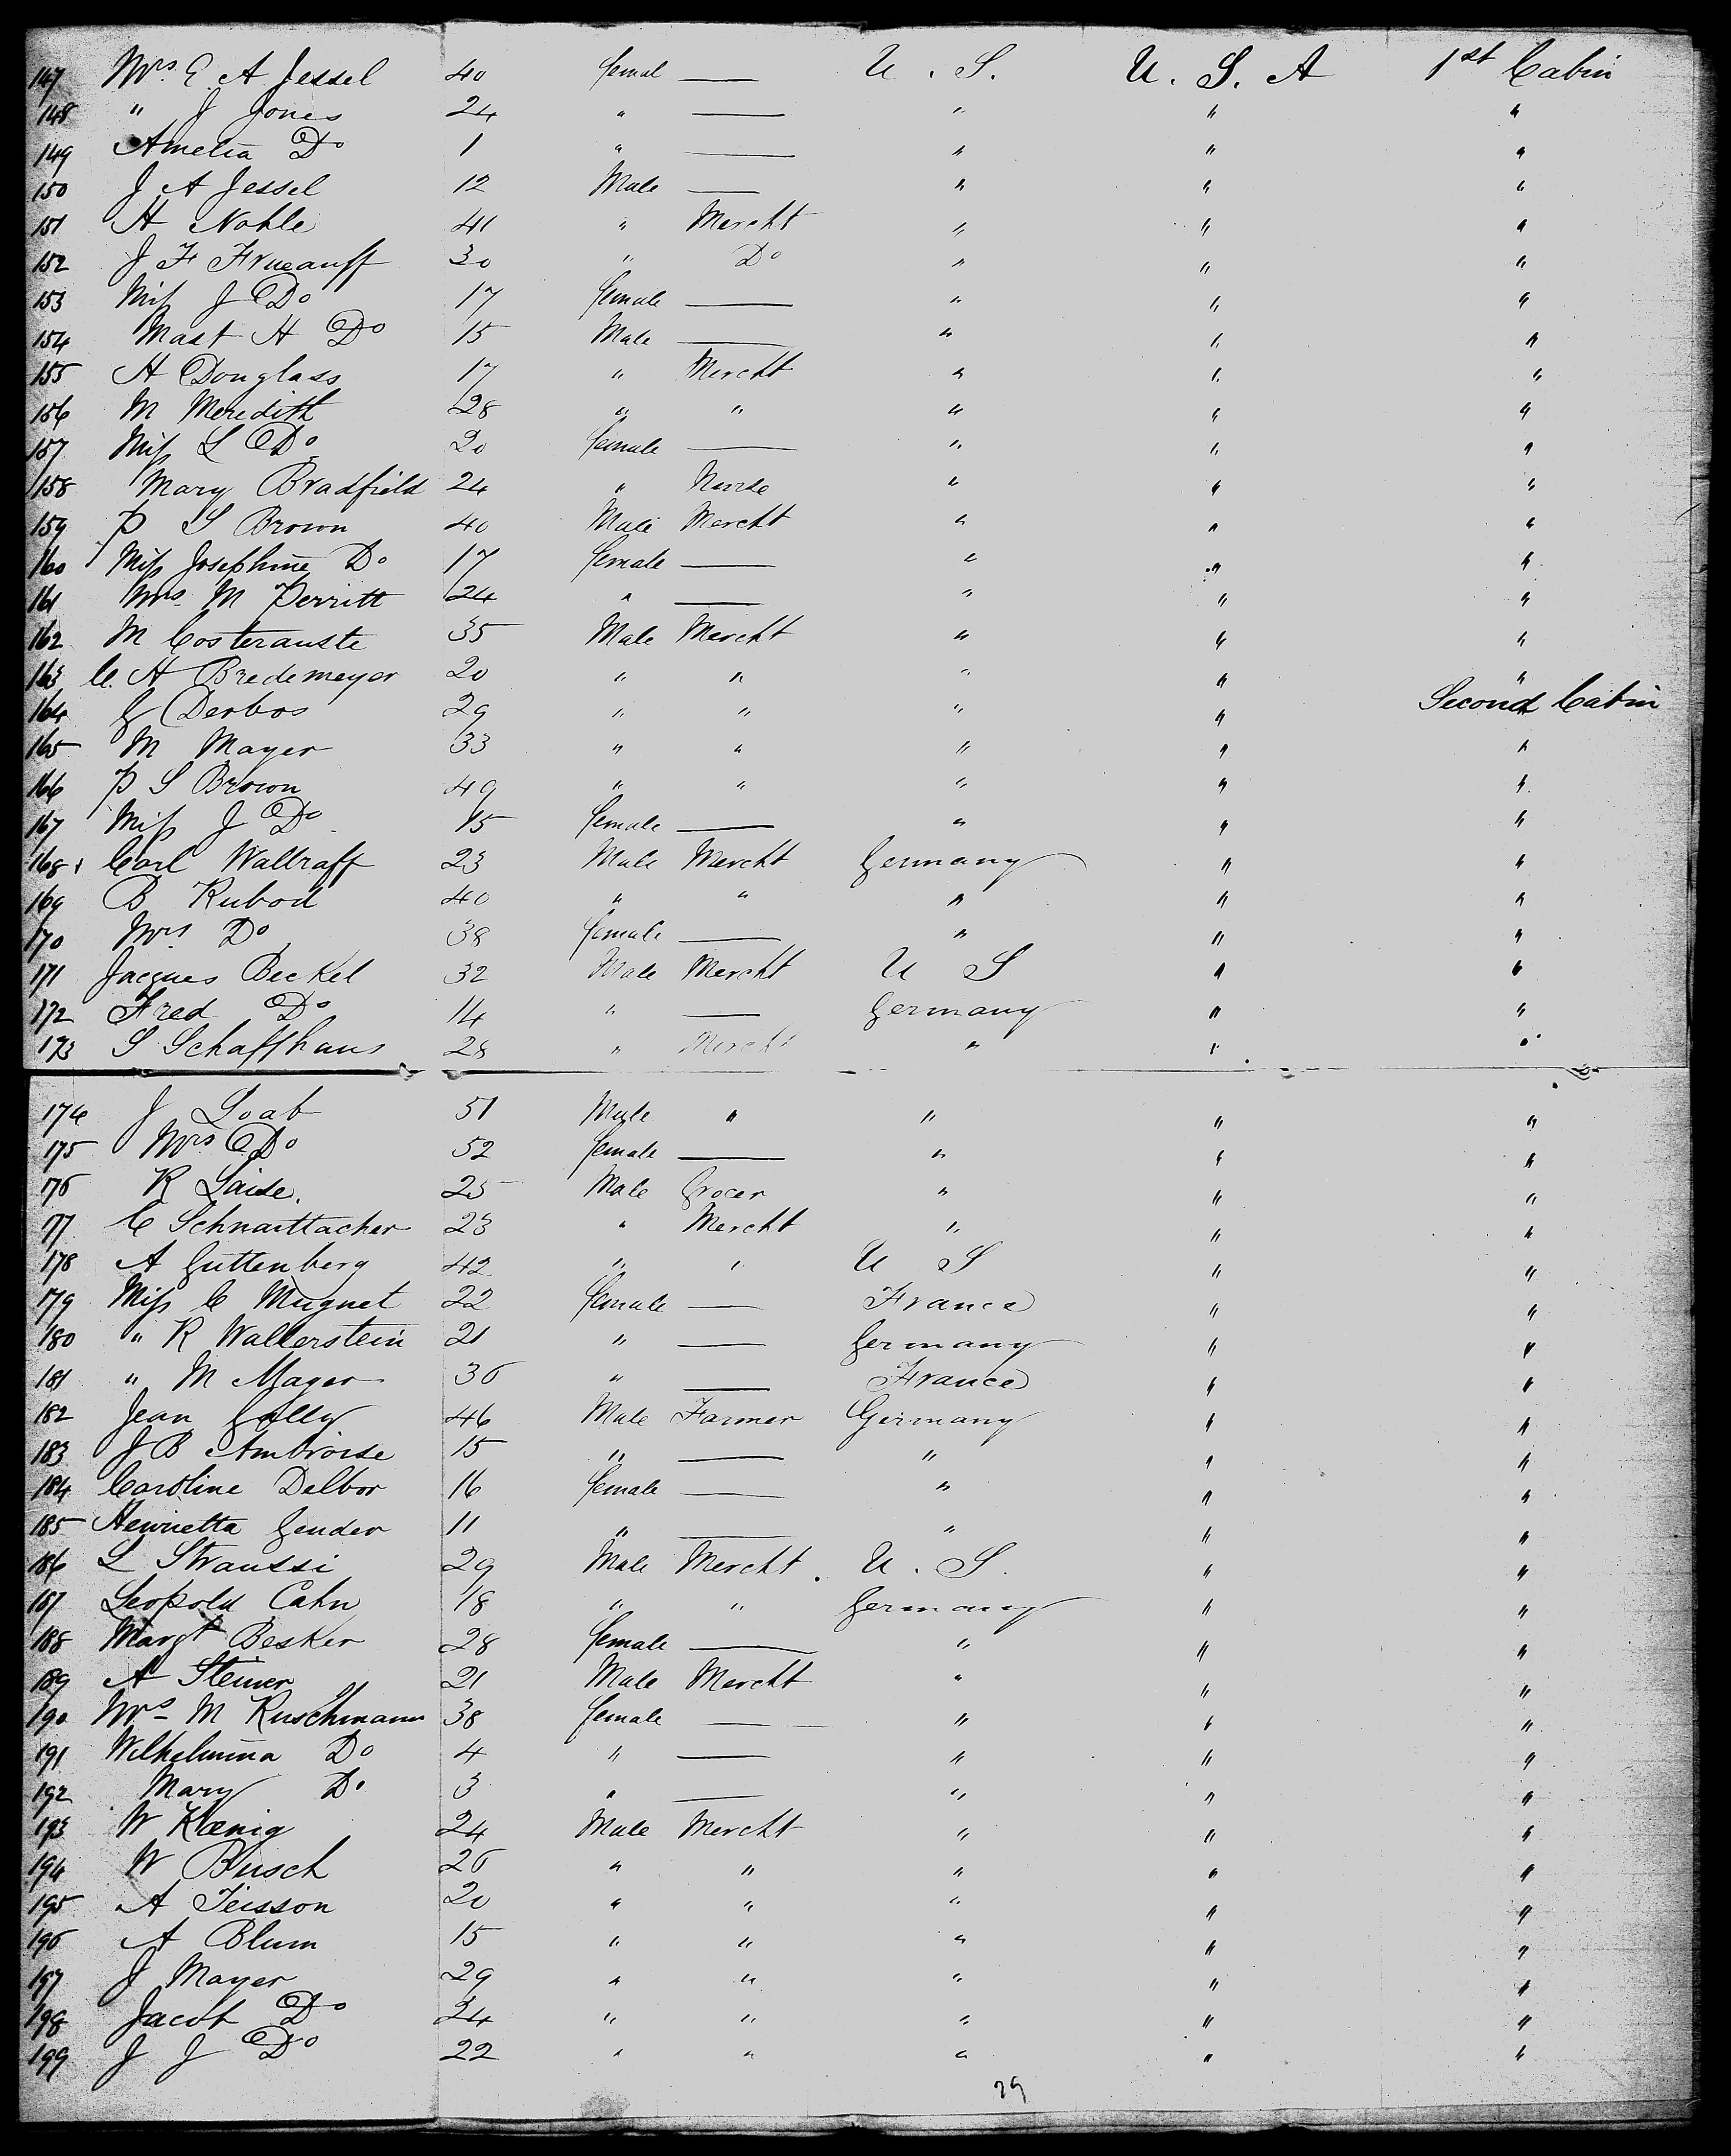 147 Mrs E. A Jessel 40 femal — U. S. U. S. A 1st Cabin
148 " J Jones 24 " — " " "
149 Amelia Do 1 " — " " "
150 J A Jessel 12 Male — " " "
151 H Nohle 41 " Mercht " " "
152 J F Frueauff 30 " Do " " "
153 Miss J Do 17 female — " " "
154 Mast H Do 15 Male — " " "
155 H Douglass 17 " Mercht " " "
156 M Meredith 28 " " " " "
157 Miss L Do 20 female — " " "
158 Mary Bradfield 24 " Nurse " " "
159 P S Brown 40 Male Mercht " " "
160 Miss Josephine Do 17 female — " " "
161 Mrs M Perritt 24 " — " " "
162 M Costerauste 35 Male Mercht " " "
163 C. H Bredemeyer 20 " " " " "
164 G Derbos 29 " " " " Second Cabin
165 M Mayer 33 " " " " "
166 P S Brown 49 " " " " "
167 Miss J Do 15 female — " " "
168 Carl Wallraff 23 Male Mercht Germany " "
169 B Kubod 40 " " " " "
170 Mrs Do 38 female — " " "
171 Jacques Beckel 32 Male Mercht U S " "
172 Fred Do 14 " — Germany " "
173 S Schaffhaus 28 " Mercht " " "
174 J Loab 51 Male " " " "
175 Mrs Do 52 female — " " "
176 K Laise. 25 Male Grocer " " "
177 C Schnaittacher 23 " Mercht " " "
178 A Guttenberg 42 " " U S " "
179 Miss C Mugnet 22 female — France " "
180 " R Wallerstein 21 " — Germany " "
181 " M Mayer 36 " — France " "
182 Jean Golly 46 Male Farmer Germany " "
183 J B Ambroise 15 " — " " "
184 Caroline Delbor 16 female — " " "
185 Henrietta Gender 11 " — " " "
186 L Straussi 29 Male Mercht. U. S. " "
187 Leopold Cahn 18 " " Germany " "
188 Margt Besker 28 female — " " "
189 A Steiner 21 Male Mercht " " "
190 Mrs M Kuschmann 38 female — " " "
191 Wilhelmina Do 4 " — " " "
192 Mary Do 3 " — " " "
193 W Kœnig 24 Male Mercht " " "
194 W Busch 26 " " " " "
195 A Teisson 20 " " " " "
196 A Blum 15 " " " " "
197 J Mayer 29 " " " " "
198 Jacob Do 24 " " " " "
199 J J Do 22 " " " " "
29